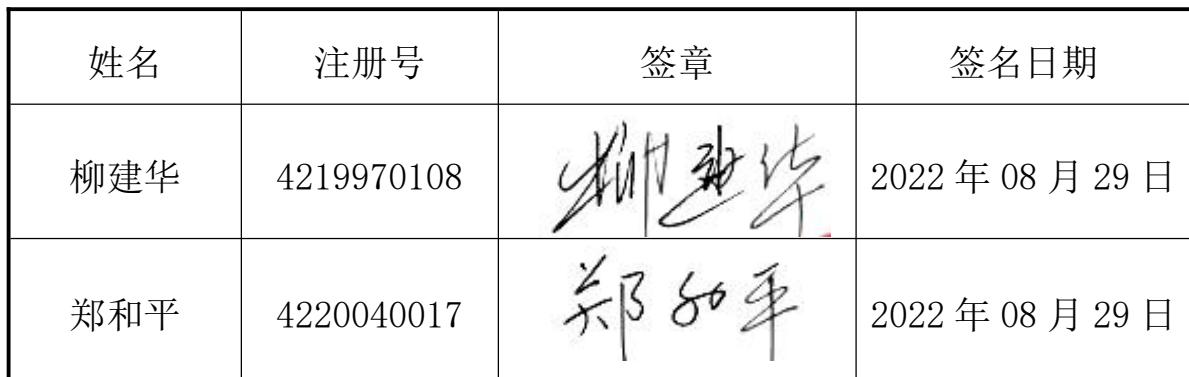 姓名 注册号 签章 签名日期
柳建华 4219970108 柳建华 2022 年 08 月 29 日
郑和平 4220040017 郑和平 2022 年 08 月 29 日